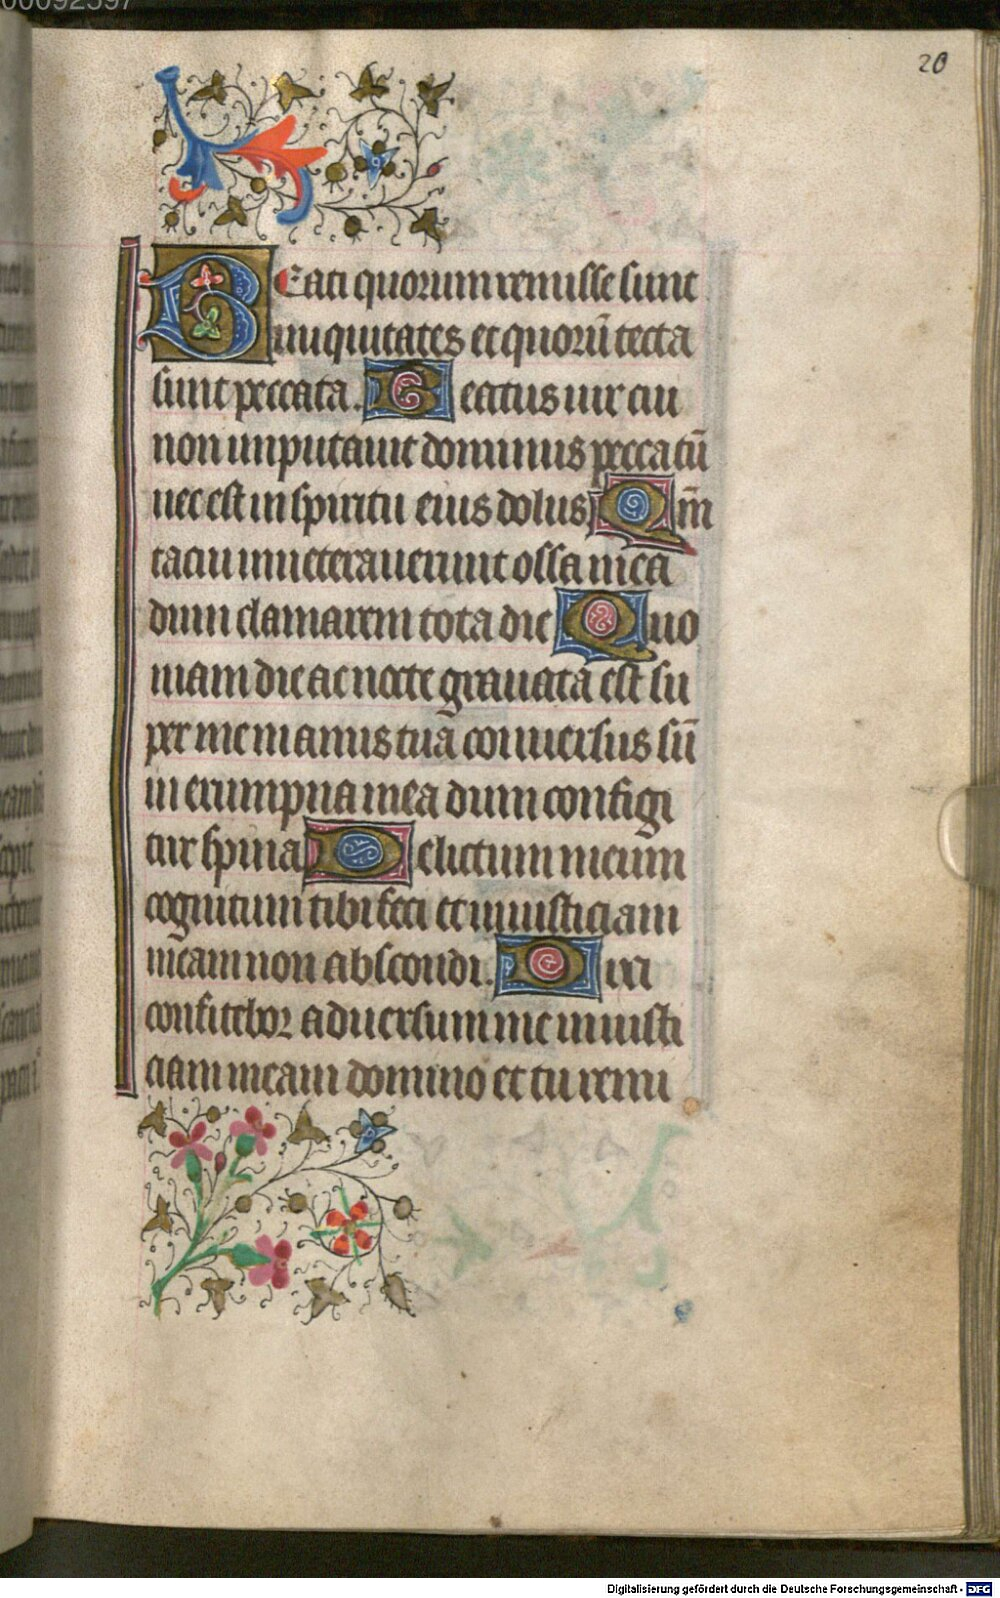 00092597
20
Beati quorum remisse sunt
iniquitates et quorū tecta
sunt peccata. Beatus uir cui
non imputauit dominus peccatū
nec est in spiritu eius dolus Qm̄
tacui inueterauerunt ossa mea
dum clamarem tota die Quo
niam die ac nocte grauata est su
per me manus tua conuersus sū
in erumpna mea dum configi
tur spina Delictum meum
cognitum tibi feci et iniusticiam
meam non abscondi. Dixi
confitebor aduersum me iniusti
ciam meam domino et tu remi
Digitalisierung gefördert durch die Deutsche Forschungsgemeinschaft - DFG